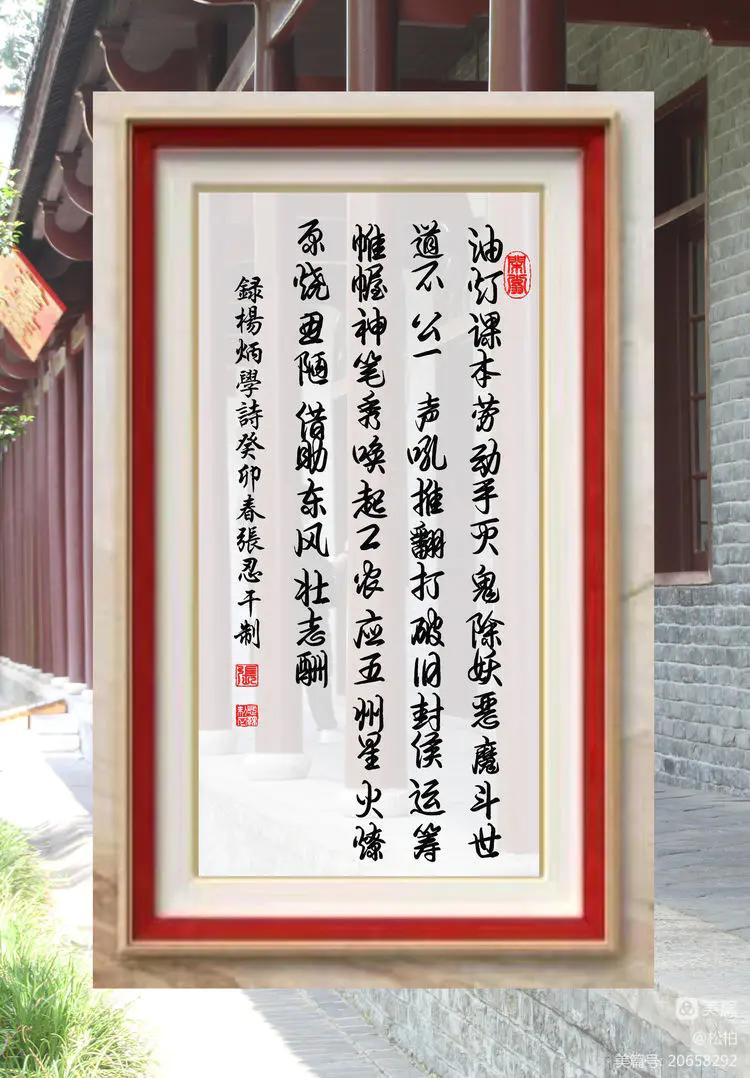 油灯课本劳动手灭鬼除妖恶魔斗世
道不公一声吼推翻打破旧封侯运筹
帷幄神笔秀唤起工农应五州星火燎
原烧丑陋借助东风壮志酬
録楊炳學詩癸卯春張忍干制
美篇
@松柏
美篇号: 20658292